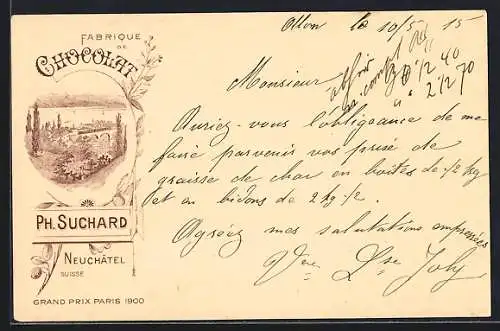 FABRIQUE
DE
CHOCOLAT
PH. SUCHARD
NEUCHÂTEL
SUISSE
GRAND PRIX PARIS 1900
Ollon le 10/5 15
Monsieur
Auriez-vous l'obligeance de me
faire parvenir vos prix de
graisse de char en boîtes de 1/2 kg
et en bidons de 2 kg 1/2.
Agréez mes salutations empressées
Vve Lse Joly